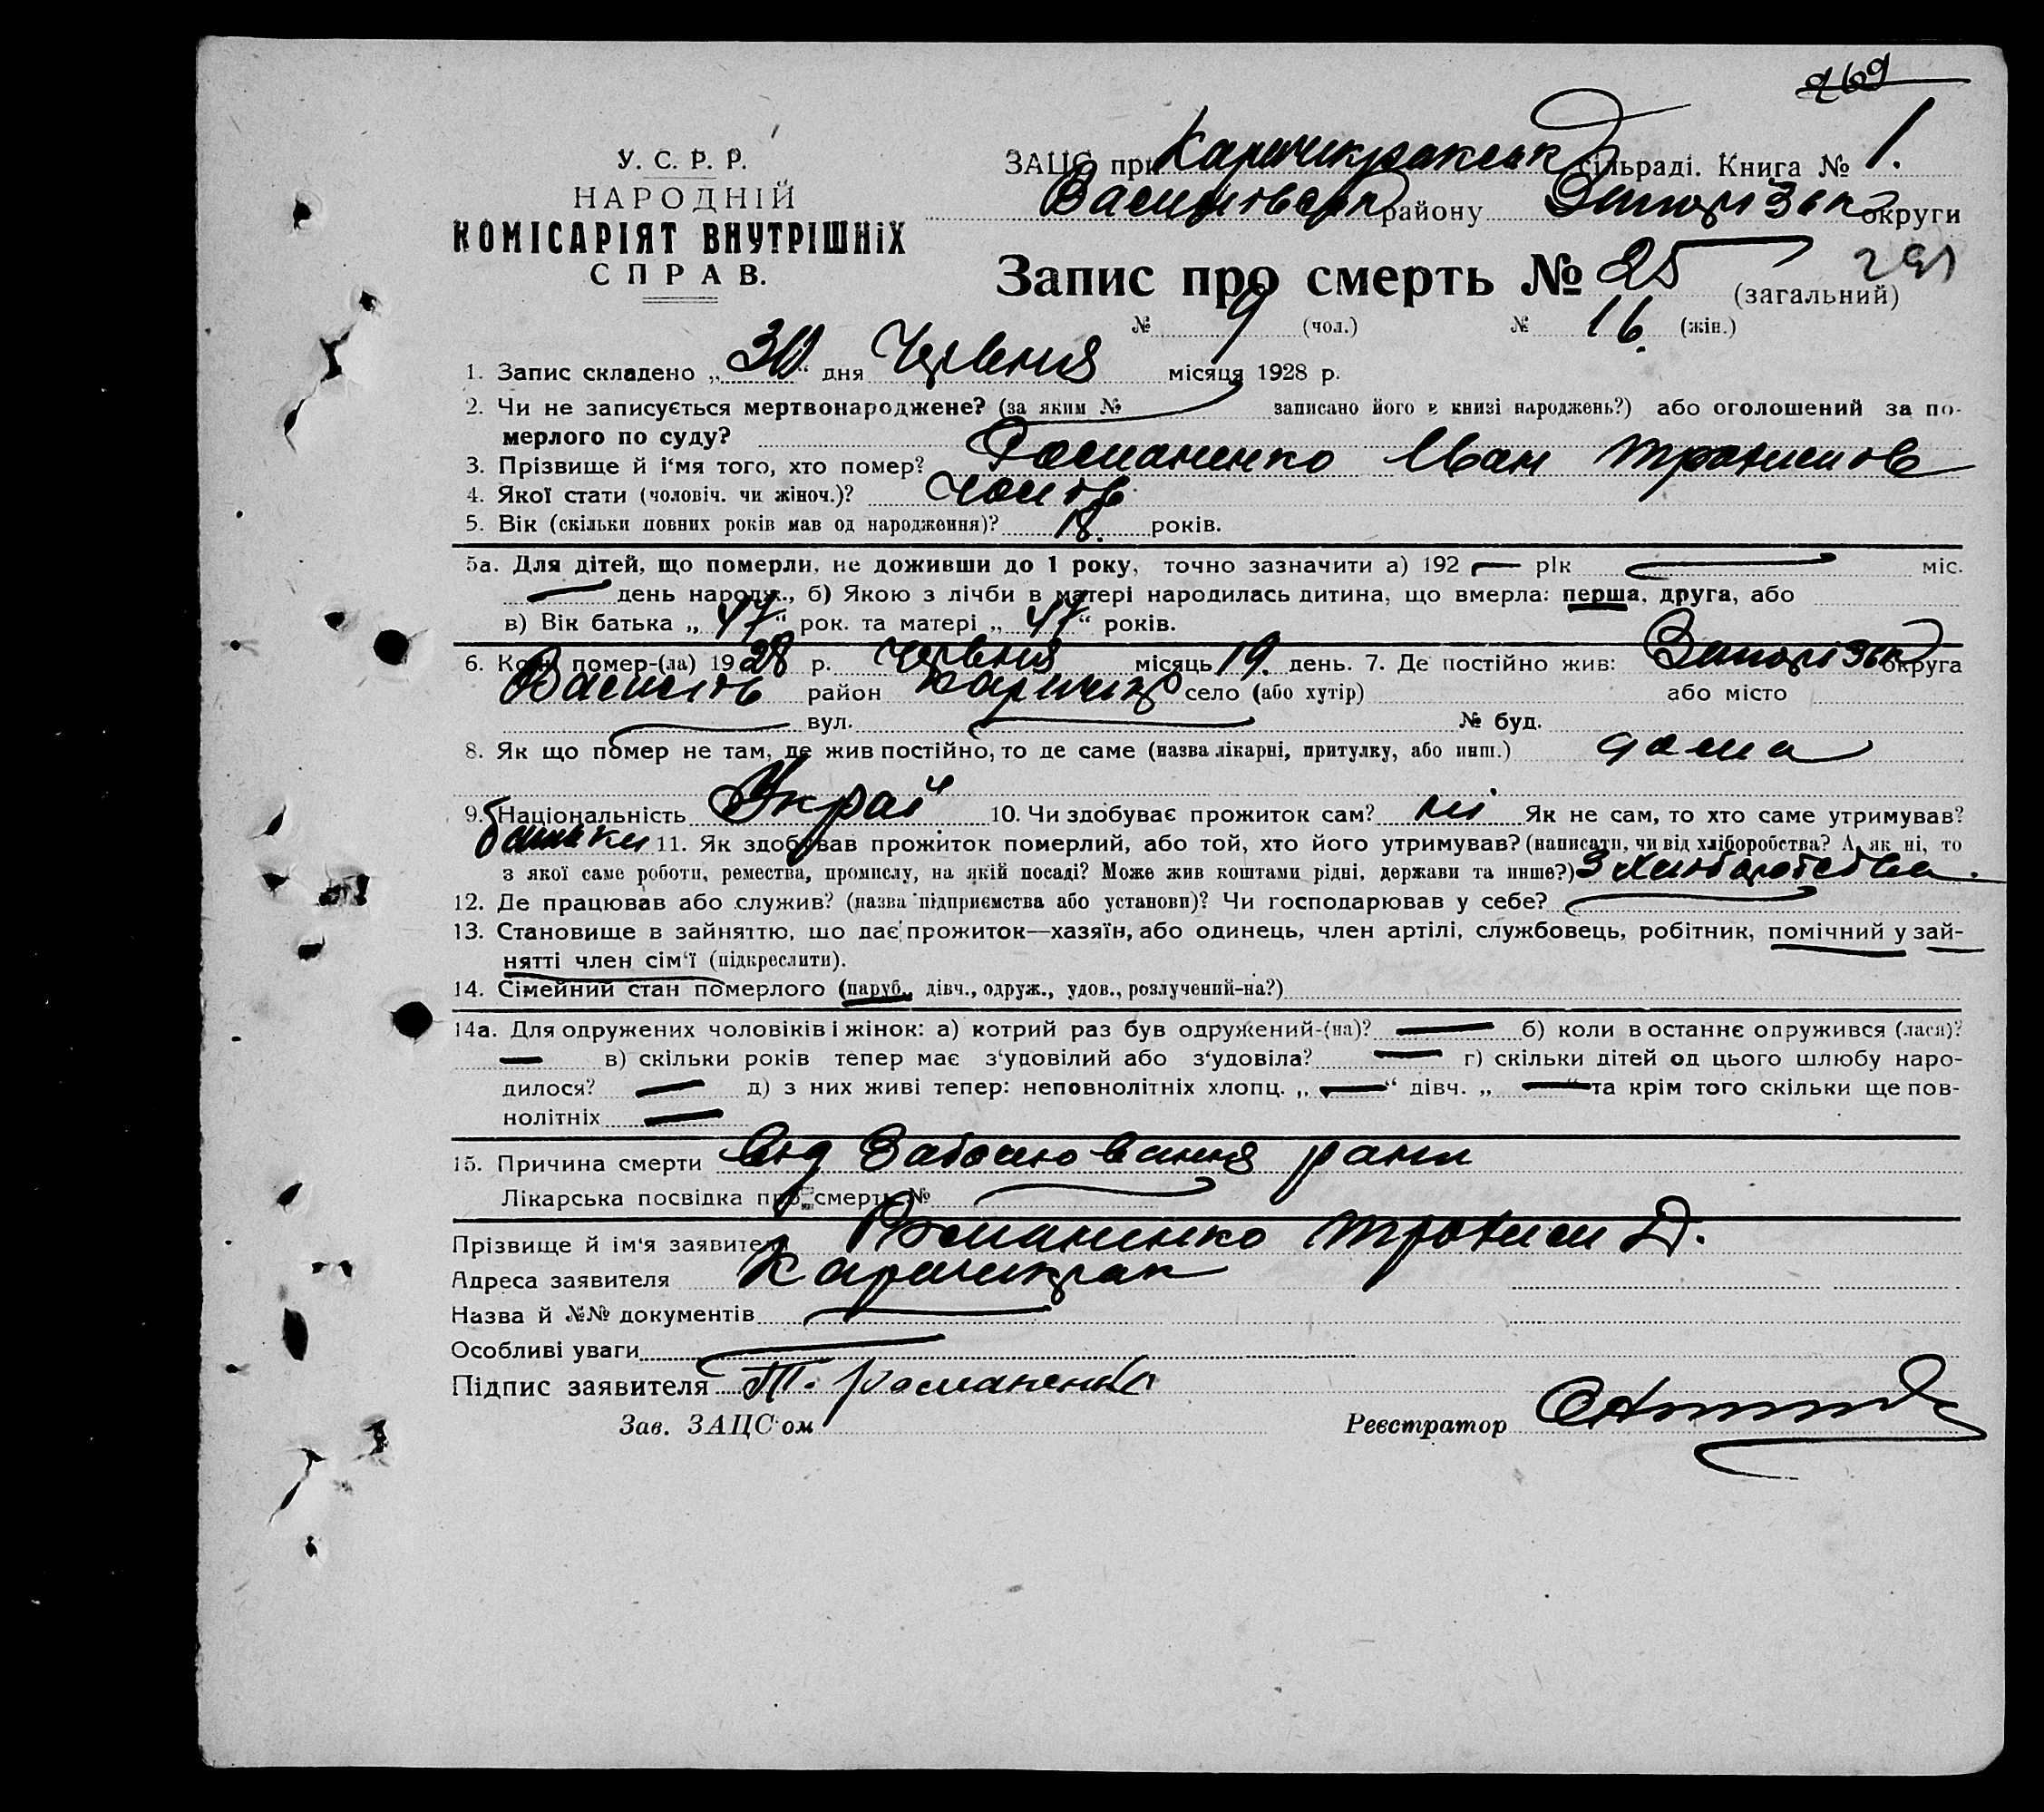 269
У. С. Р. Р.
НАРОДНІЙ
КОМІСАРІЯТ ВНУТРІШНІХ
СПРАВ.
ЗАЦС при Карачикракськ сільраді. Книга № 1.
Василівськ району Запорізьк округи
Запис про смерть № 25 (загальний) 291
№ 9 (чол.) № 16. (жін.)
1. Запис складено „30“ дня Червня місяця 1928 р.
2. Чи не записується мертвонароджене? (за яким № записано його в книзі народжень?) або оголошений за по-
мерлого по суду?
3. Прізвище й і‘мя того, хто помер? Романенко Іван Трохимов
4. Якої стати (чоловіч. чи жіноч.)? Чолов
5. Вік (скільки повних років мав од народження)? 18. років.
5а. Для дітей, що померли, не доживши до 1 року, точно зазначити а) 192 — рік — міс.
— день народж., б) Якою з лічби в матері народилась дитина, що вмерла: перша, друга, або
в) Вік батька „47“ рок. та матері „47“ років.
6. Коли помер-(ла) 1928 р. Червня місяць 19. день. 7. Де постійно жив: Запорізьк округа
Василів район Карачикр село (або хутір) або місто
вул. № буд.
8. Як що помер не там, де жив постійно, то де саме (назва лікарні, притулку, або инш.) дома
9. Національність Украй 10. Чи здобуває прожиток сам? ні Як не сам, то хто саме утримував?
батьки 11. Як здобував прожиток померлий, або той, хто його утримував? (написати, чи від хліборобства? А як ні, то
з якої саме роботи, ремества, промислу, на якій посаді? Може жив коштами рідні, держави та инше?) З хліборобства.
12. Де працював або служив? (назва підприємства або установи)? Чи господарював у себе?
13. Становище в зайняттю, що дає прожиток—хазяїн, або одинець, член артілі, службовець, робітник, помічний у зай-
нятті член сім‘ї (підкреслити).
14. Сімейний стан померлого (паруб., дівч., одруж., удов., розлучений-на?)
14а. Для одружених чоловіків і жінок: а) котрий раз був одружений-(на)? — б) коли в останнє одружився (лася)?
— в) скільки років тепер має з‘удовілий або з‘удовіла? — г) скільки дітей од цього шлюбу наро-
дилося? — д) з них живі тепер: неповнолітніх хлопц. „—“ дівч. „—“ та крім того скільки ще пов-
нолітніх —
15. Причина смерти Від Заболювання рани
Лікарська посвідка про смерть №
Прізвище й ім‘я заявителя Романенко Трохим Д.
Адреса заявителя Карачикрак
Назва й №№ документів
Особливі уваги
Підпис заявителя Т. Романенко
Зав. ЗАЦС‘ом
Реєстратор